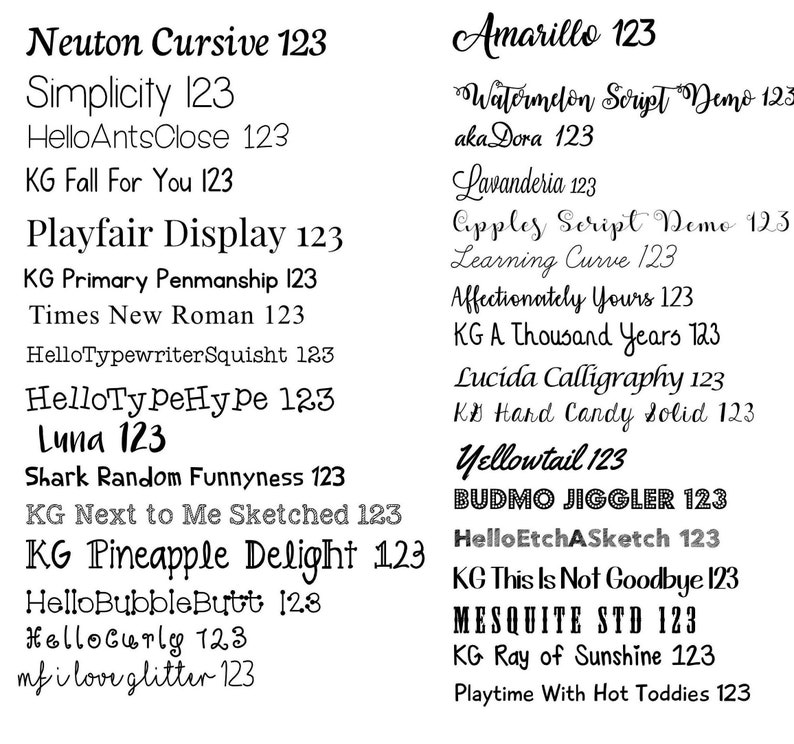 Neuton Cursive 123
Simplicity 123
HelloAntsClose 123
KG Fall For You 123
Playfair Display 123
KG Primary Penmanship 123
Times New Roman 123
HelloTypewriterSquisht 123
HelloTypeHype 123
Luna 123
Shark Random Funnyness 123
KG Next to Me Sketched 123
KG Pineapple Delight 123
HelloBubbleButt 123
HelloCurly 123
mf i love glitter 123
Amarillo 123
Watermelon Script Demo 123
akaDora 123
Lavanderia 123
Apples Script Demo 123
Learning Curve 123
Affectionately Yours 123
KG A Thousand Years 123
Lucida Calligraphy 123
KG Hard Candy Solid 123
Yellowtail 123
BUDMO JIGGLER 123
HelloEtchASketch 123
KG This Is Not Goodbye 123
MESQUITE STD 123
KG Ray of Sunshine 123
Playtime With Hot Toddies 123